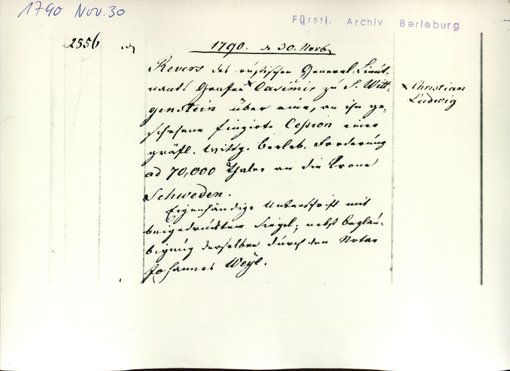 1790 Nov. 30
Fürstl. Archiv Berleburg
2556
1790. d 30. Novb.
Revers des russischen General-Lieut-
nants Grafen Casimir zu S. Witt-
genstein über eine, an ihn ge-
schehene fingirte Cession einer
gräfl. Wittg. Berleb. Forderung
ad 70,000 Thaler an die Krone
Schweden.
Eigenhändige Unterschrift mit
beigedrücktem Siegel; nebst beglau-
bigung derselben durch den Notar
Johannes Weyl.
x Christian
Ludwig